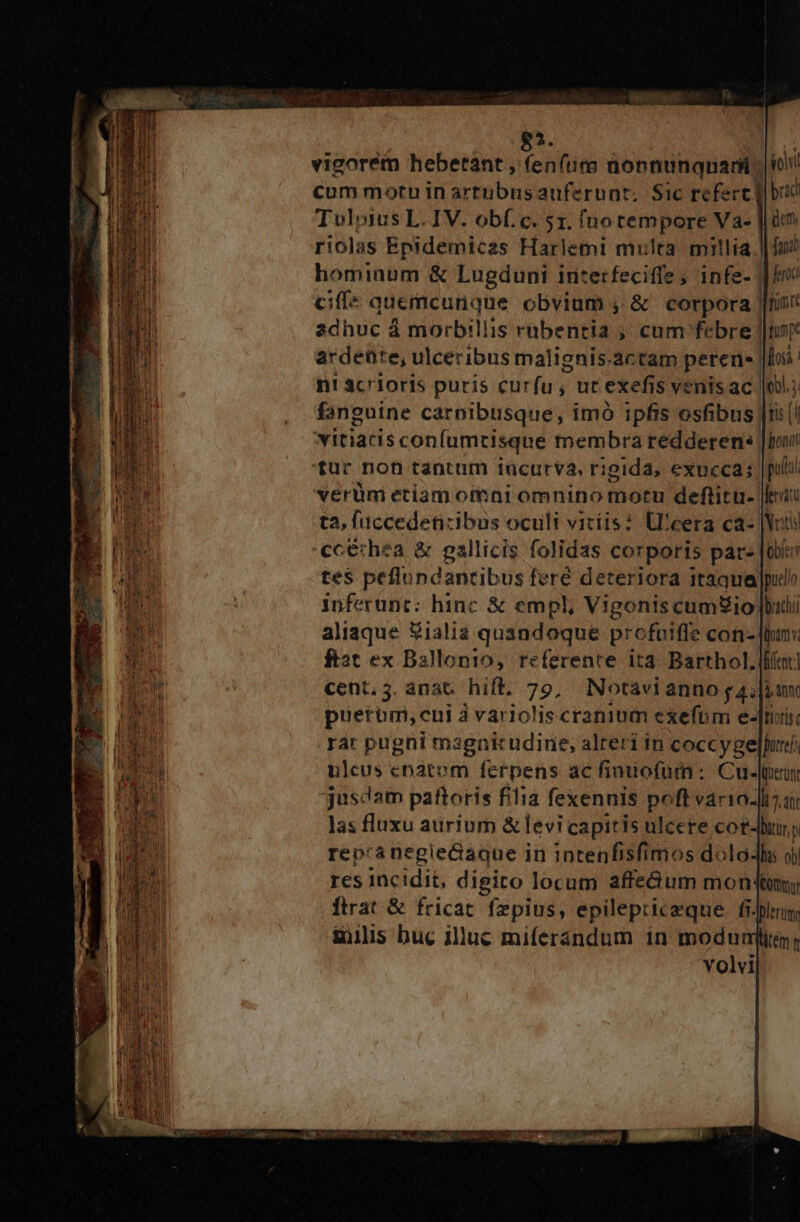 82.
vigorem hebetant, ſenſum nonnunquam
cum motu in artubus auferunt. Sic refert
Tulpius L. IV. obſ. c. 51. ſuo tempore Va-
riolas Epidemicas Harlemi multa millia
hominum & Lugduni interfeciſſe, infe-
ciſſe quemcunque obvium, & corpora
adhuc á morbillis rubentia, cum febre
ardente, ulceribus malignis actam peren-
ni acrioris puris curſu, ut exeſis venis ac
ſanguine carnibusque, imò ipſis osſibus
vitiatis conſumtisque membra redderen-
tur non tantum incurva, rigida, exucca;
verùm etiam omni omnino motu deſtitu-
ta, ſuccedentibus oculi vitiis: Ulcera ca-
coëthea & gallicis ſolidas corporis par-
tes peſſundantibus ferè deteriora itaque
inferunt: hinc & empl. Vigonis cum ☿io
aliaque ☿ialia quandoque profuiſſe con-
ſtat ex Ballonio, referente ita Barthol.
cent. 3. anat. hiſt. 79. Notavi anno 54.
puerum, cui à variolis cranium exeſum e-
rat pugni magnitudine, alteri in coccyge
ulcus enatum ſerpens ac ſinuoſum: Cu-
jusdam paſtoris filia ſexennis poſt vario-
las fluxu aurium & levi capitis ulcere cor-
repta neglectaque in intenſisſimos dolo-
res incidit, digito locum affectum mon-
ſtrat & fricat ſæpius, epilepticæque ſi-
milis huc illuc miſerandum in modum
volvi